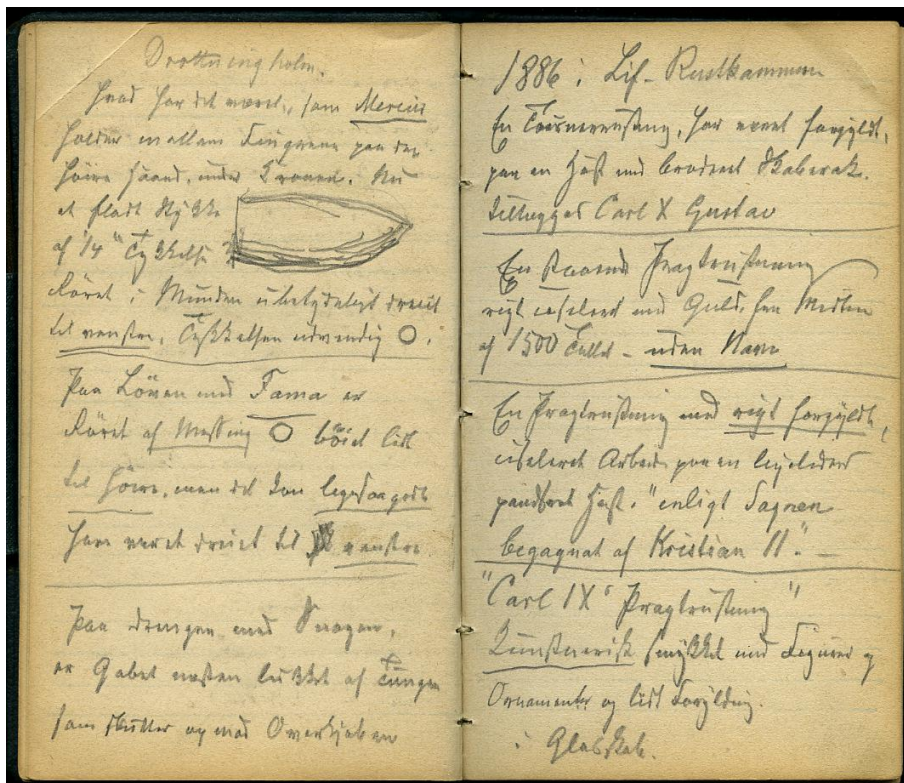 Drottningholm.
Hvad har det været, som Mercur
holder mellem Fingrene paa den
höire Haand, under Tronen. Nu
et fladt Stykke
af 1/4" Tykkelse?
Röret i Munden ubetydeligt dreiet
til venstre, Tykkelsen udvendig O.
Paa Löven med Fama er
Röret af Messing O böiet lidt
til höire, men det kan ligesaagodt
have været dreiet til venstre
Paa Drengen med Snogen,
er Gabet næsten lukket af Tungen
som slutter op mod Overkjæben
1886 i Lif-Rustkammeren
En Tournerustning, har været forgyldt,
paa en Hest med broderet Skaberak.
tillægges Carl X Gustav
En staaende Pragtrustning
rigt ciseleret med Guld, fra Midten
af 1500 Tallet - uden Navn
En Pragtrustning med rigt forgyldt,
ciseleret Arbeide paa en ligeledes
pandsret Hest. "enligt Sagnen
begagnat af Kristian II." -
"Carl IX's Pragtrustning"
Kunstnerisk smykket med Figurer og
Ornamenter og lidt Forgyldning.
i Glasskab.